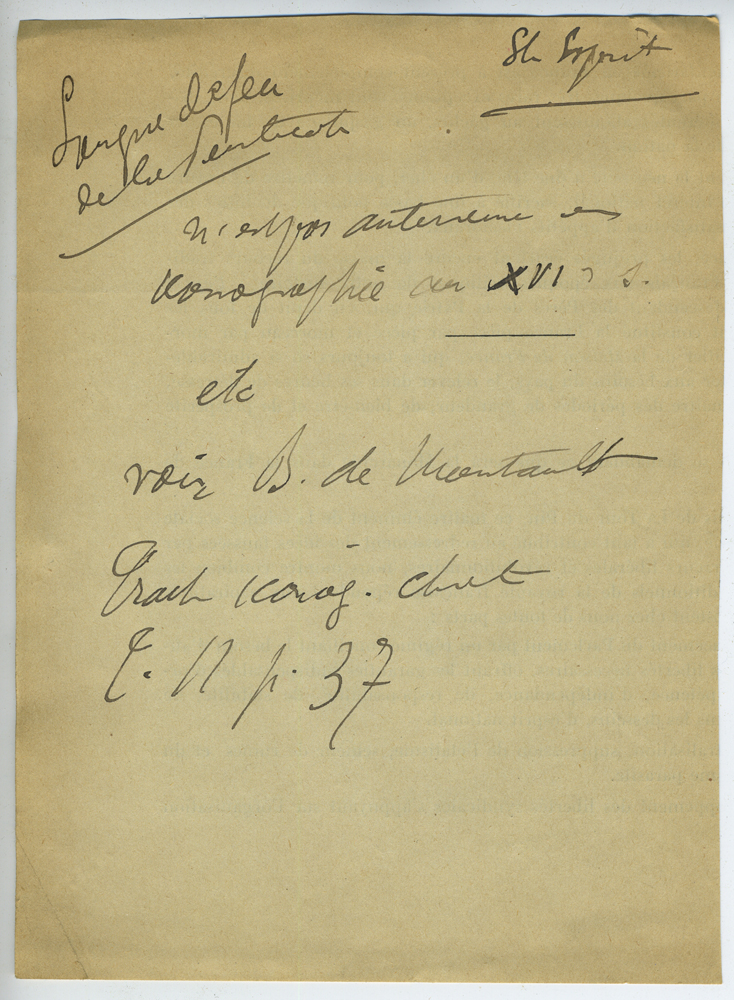 St Esprit
Langue de feu
de la Pentecote
n'est pas anterieure en
iconographie au XVI e s.
etc
voir B. de Montault
Traité iconog. chret
T. II p. 37